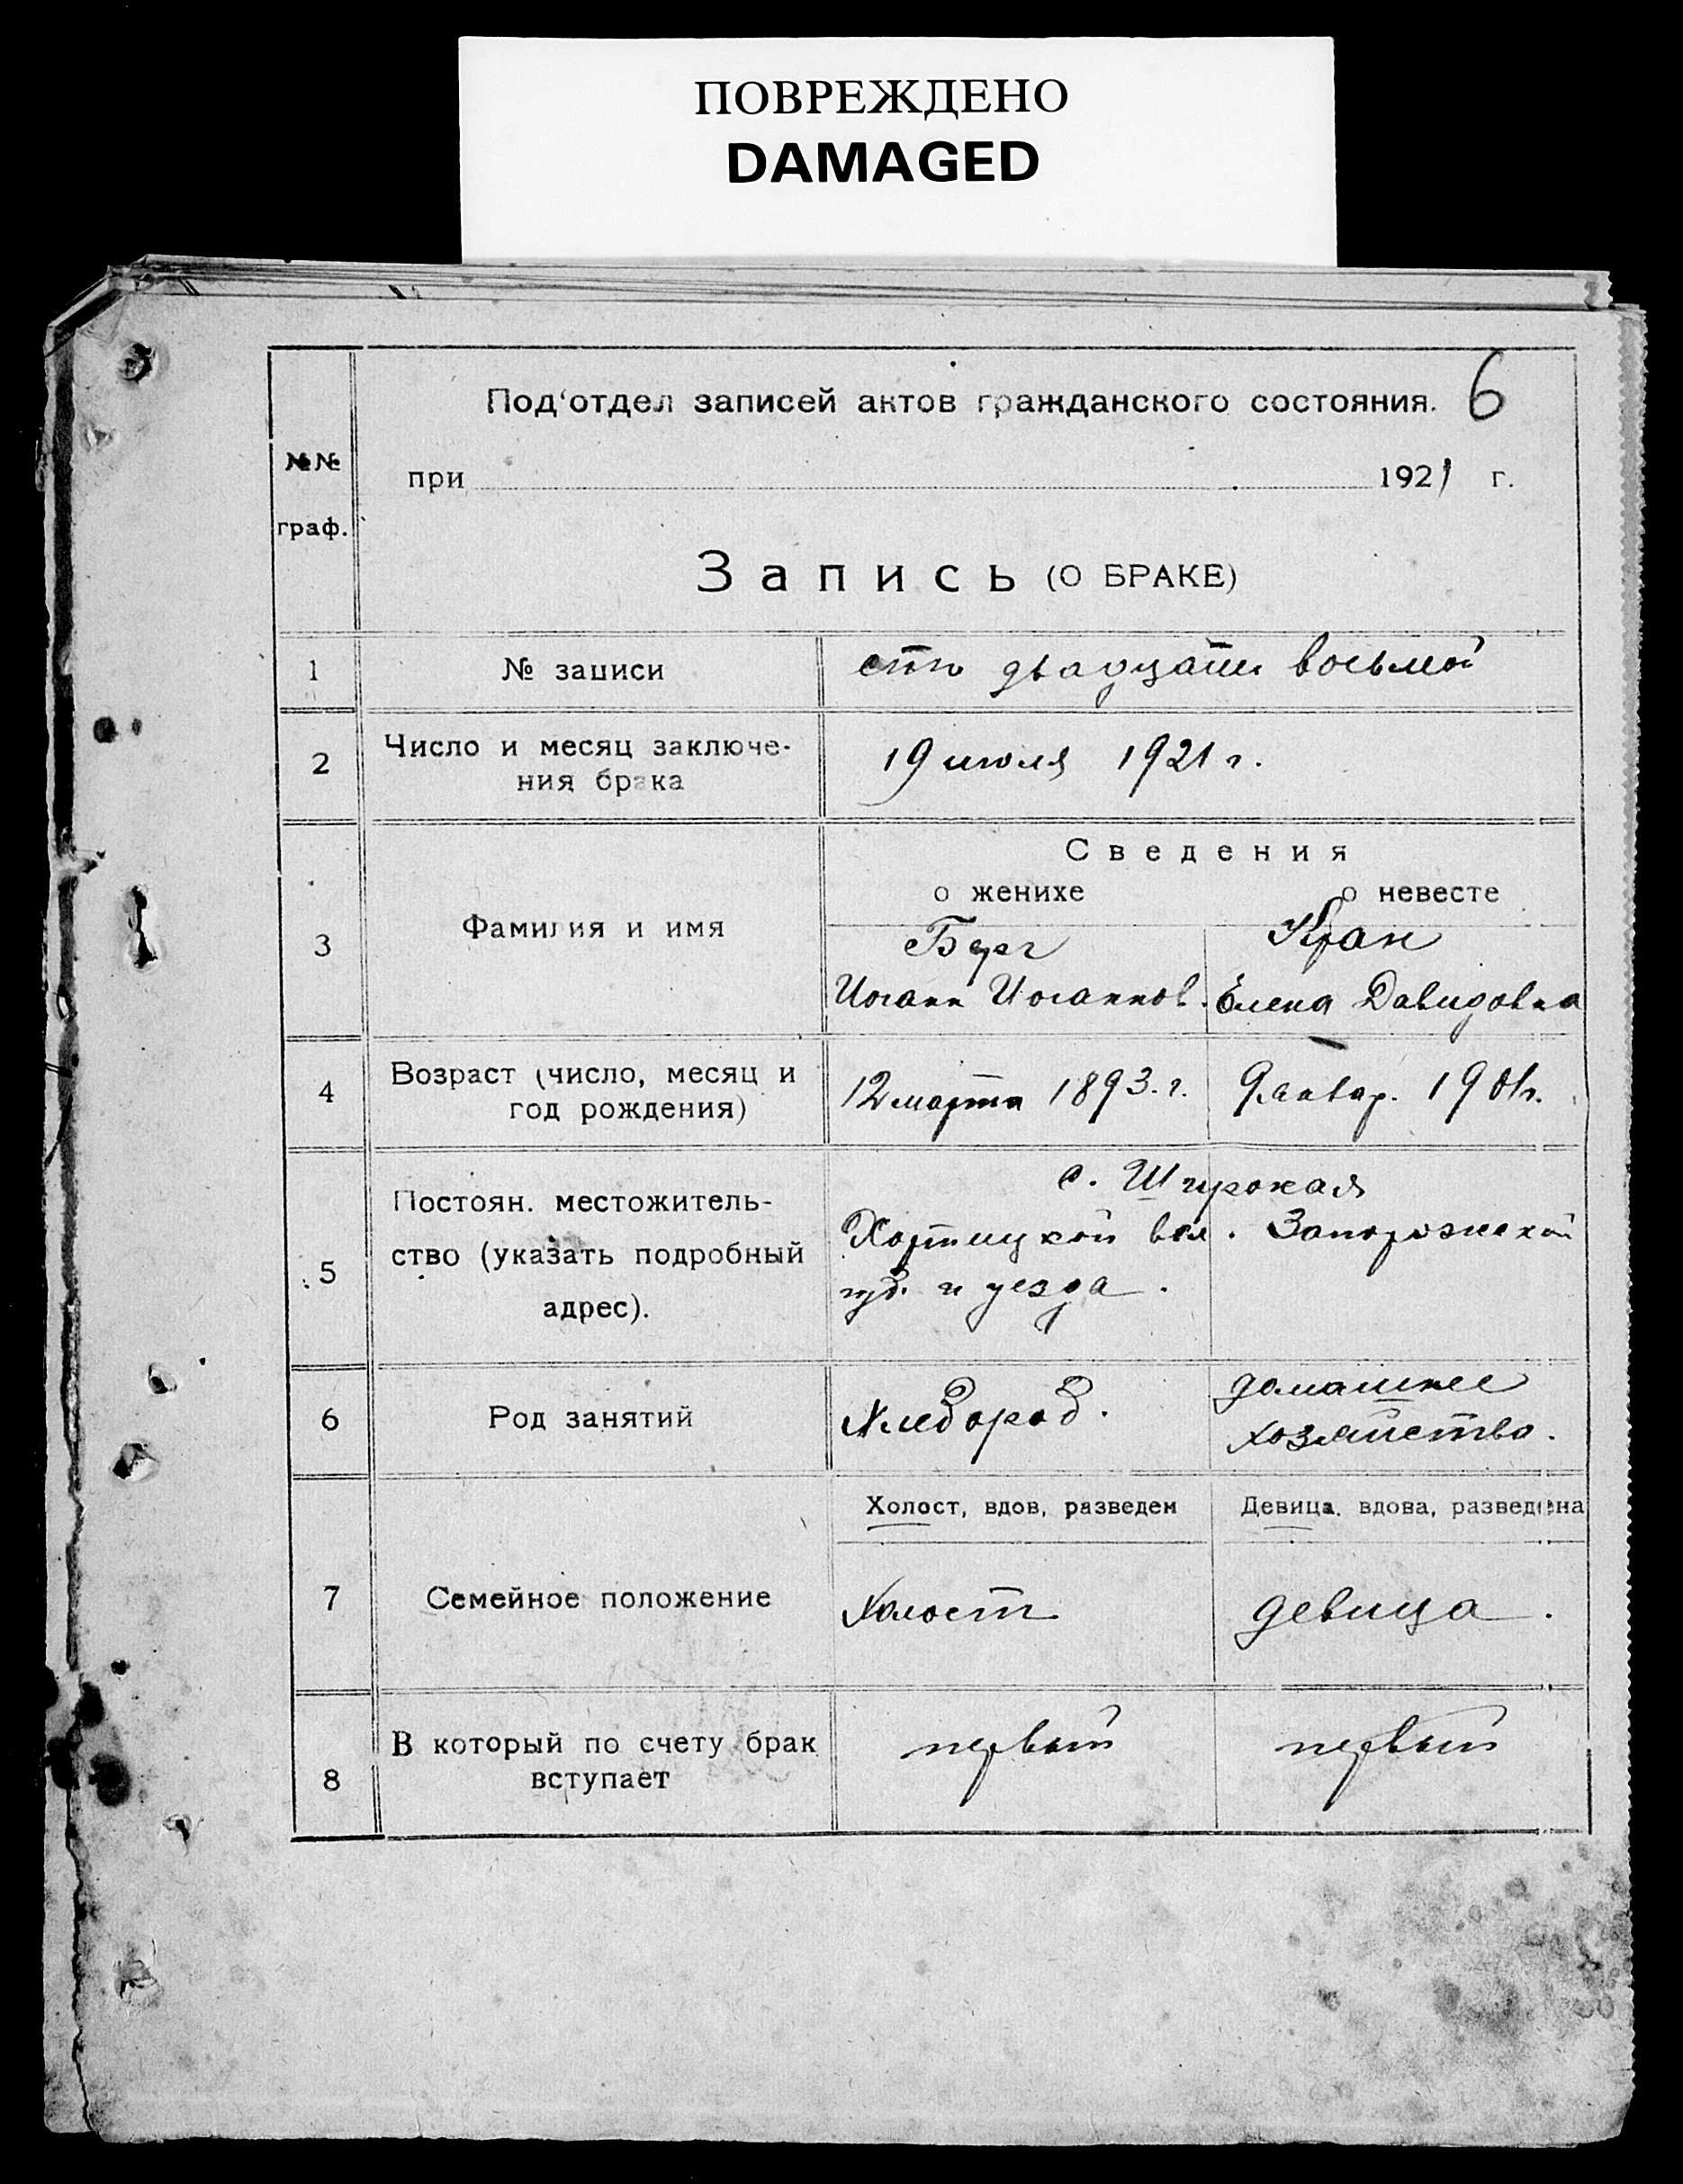 ПОВРЕЖДЕНО
DAMAGED
6
Под'отдел записей актов гражданского состояния.
№№ граф.
при 1921 г.
Запись (О БРАКЕ)
1 № записи сто двадцати восьмой
2 Число и месяц заключе-
ния брака
19 июля 1921 г.
Сведения
о женихе о невесте
3 Фамилия и имя
Берг
Иоганн Иоганнов.
Кран
Елена Давидовна
4 Возраст (число, месяц и
год рождения)
12 марта 1893. г.
9 январ. 1901 г.
5 Постоян. местожитель-
ство (указать подробный
адрес).
с.
Хортицкой вол. Запорожской
губ. и уезда.
6 Род занятий
Хлебороб.
домашнее
хозяйство.
Холост, вдов, разведен
Девица, вдова, разведена
7 Семейное положение
Холост
девица.
8 В который по счету брак
вступает
первый
первый